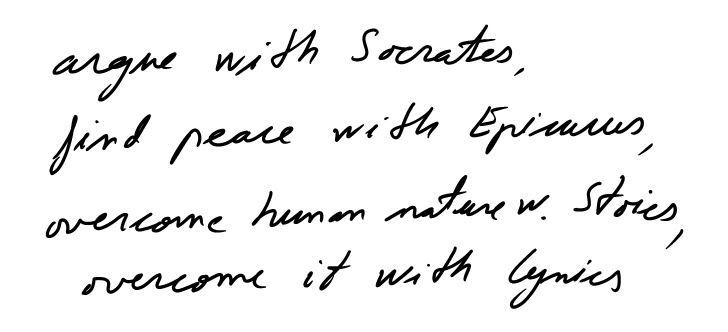 argue with Socrates,
find peace with Epicurus,
overcome human nature w. Stoics,
overcome it with Cynics